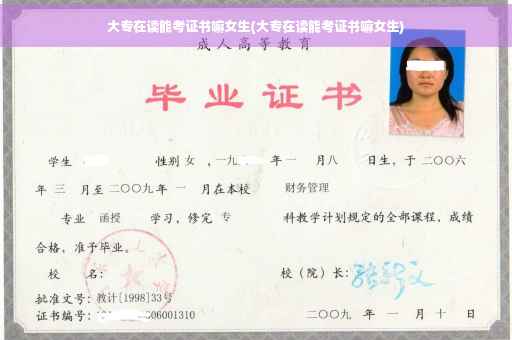 大专在读能考证书嘛女生(大专在读能考证书嘛女生)
成人高等教育
毕业证书
学生 性别 女 ，一九 年 一 月八 日生，于 二〇〇六
年 三 月至 二〇〇九 年 一 月在本校 财务管理
专业 函授 学习，修完 专 科教学计划规定的全部课程，成绩
合格，准予毕业。
校 名： 校（院）长：
批准文号：教计[1998]33号
证书编号： 06001310 二〇〇九 年 一 月 十 日